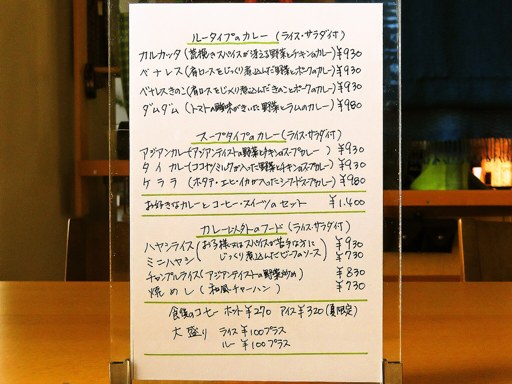 ルータイプのカレー (ライス・サラダ付)
カルカッタ (荒挽きスパイスが冴える野菜とチキンのカレー) ¥930
ベナレス (肩ロースをじっくり煮込んだ野菜とポークのカレー) ¥930
ベナレスきのこ (肩ロースをじっくり煮込んだきのことポークのカレー) ¥930
ダムダム (トマトの酸味がきいた野菜とラムのカレー) ¥980
スープタイプのカレー (ライス・サラダ付)
アジアンカレー (アジアンテイストの野菜とチキンのスープカレー) ¥930
タイカレー (ココナツミルクが入った野菜とチキンのスープカレー) ¥930
ケララ (ホタテ・エビ・イカが入ったシーフードスープカレー) ¥980
お好きなカレーとコーヒー・スイーツのセット ¥1.400
カレー以外のフード (ライス・サラダ付)
ハヤシライス (お子様又はスパイスが苦手な方に ¥930
ミニハヤシ じっくり煮込んだビーフのソース) ¥730
チャンプルライス (アジアンテイストの野菜炒め) ¥830
焼めし (和風チャーハン) ¥730
食後のコーヒー ホット¥270 アイス¥320 (夏限定)
大盛り ライス¥100プラス
ルー ¥100プラス